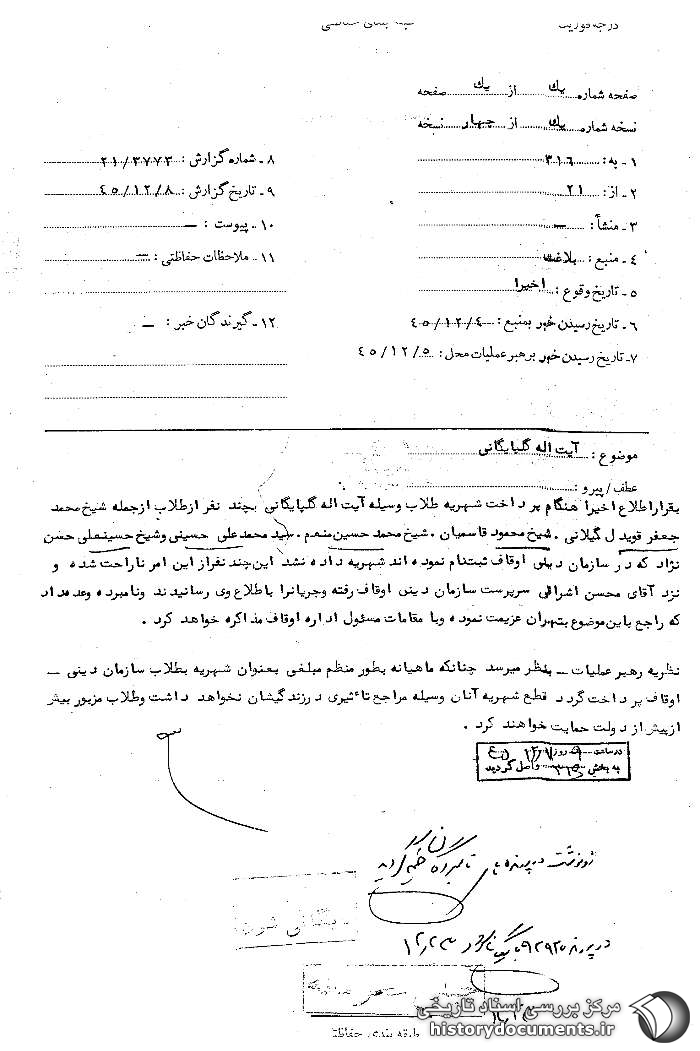 درجه فوریت
طبقه بندی حفاظتی
صفحه شماره یك از یك صفحه
نسخه شماره یك از چهار نسخه
۱ ـ به : ۳۱۶
۲ ـ از : ۲۱
۳ ـ منشأ : ـ
۴ ـ منبع : بلاغت
۵ ـ تاریخ وقوع : اخیرا
۶ ـ تاریخ رسیدن خبر بمنبع : ۴۵/۱۲/۴
۷ ـ تاریخ رسیدن خبر برهبر عملیات محل : ۴۵/۱۲/۵
۸ ـ شماره گزارش : ۲۱/۳۷۷۳
۹ ـ تاریخ گزارش : ۴۵/۱۲/۸
۱۰ ـ پیوست : ـ
۱۱ ـ ملاحظات حفاظتی : ـ
۱۲ ـ گیرندگان خبر : ـ
موضوع : آیت اله گلپایگانی
عطف / پیرو :
بقرار اطلاع اخیرا هنگام پرداخت شهریه طلاب وسیله آیت اله گلپایگانی بچند نفر از طلاب ازجمله شیخ محمد
جعفر قویدل گیلانی . شیخ محمود قاسمیان . شیخ محمد حسین منعم . سید محمدعلی حسینی وشیخ حسینعلی حسن
نژاد که در سازمان دینی اوقاف ثبتنام نموده اند شهریه داده نشد این چند نفراز این امر ناراحت شده و
نزد آقای محسن اشراقی سرپرست سازمان دینی اوقاف رفته وجریانرا باطلاع وی رسانیدند ونامبرده وعده داد
که راجع باین موضوع بتهران عزیمت نموده وبا مقامات مسئول اداره اوقاف مذاکره خواهد کرد .
نظریه رهبر عملیات ـ بنظر میرسد چنانکه ماهیانه بطور منظم مبلغی بعنوان شهریه بطلاب سازمان دینی ـ
اوقاف پرداخت گردد قطع شهریه آنان وسیله مراجع تاءثیری درزندگیشان نخواهد داشت وطلاب مزبور بیش
ازپیش از دولت حمایت خواهند کرد .
در ساعت روز
به بخش ۳۱۶ واصل گردید
رونوشت در پرونده
بگانی شود
در پرونده ۹۲۹۲۵ بایگانی شود ۱۲/۲۳
طبقه بندی حفاظتی
مرکز بررسی اسناد تاریخی
historydocuments.ir